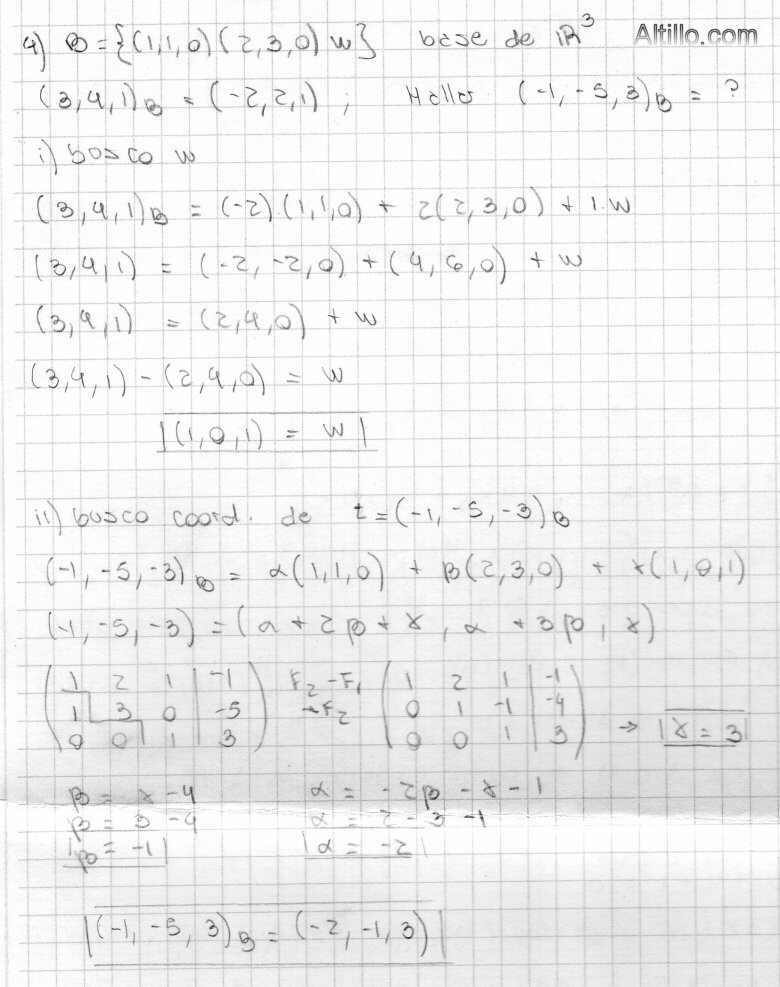 4) B = {(1,1,0) (2,3,0) w} base de IR³ Altillo.com
(3,4,1)B = (-2,2,1) ; Hallar (-1,-5,3)B = ?
i) busco w
(3,4,1)B = (-2)(1,1,0) + 2(2,3,0) + 1.w
(3,4,1) = (-2,-2,0) + (4,6,0) + w
(3,4,1) = (2,4,0) + w
(3,4,1) - (2,4,0) = w
|(1,0,1) = w|
ii) busco coord. de t = (-1,-5,-3)B
(-1,-5,-3)B = α(1,1,0) + β(2,3,0) + γ(1,0,1)
(-1,-5,-3) = (α + 2β + γ, α + 3β, γ)
1 2 1 | -1 F2 - F1 1 2 1 | -1
1 3 0 | -5 →F2 0 1 -1 | -4 → |γ = 3|
0 0 1 | 3 0 0 1 | 3
β = γ - 4 α = -2β - γ - 1
β = 3 - 4 α = 2 - 3 - 1
|β = -1| |α = -2|
|(-1,-5,3)B = (-2,-1,3)|